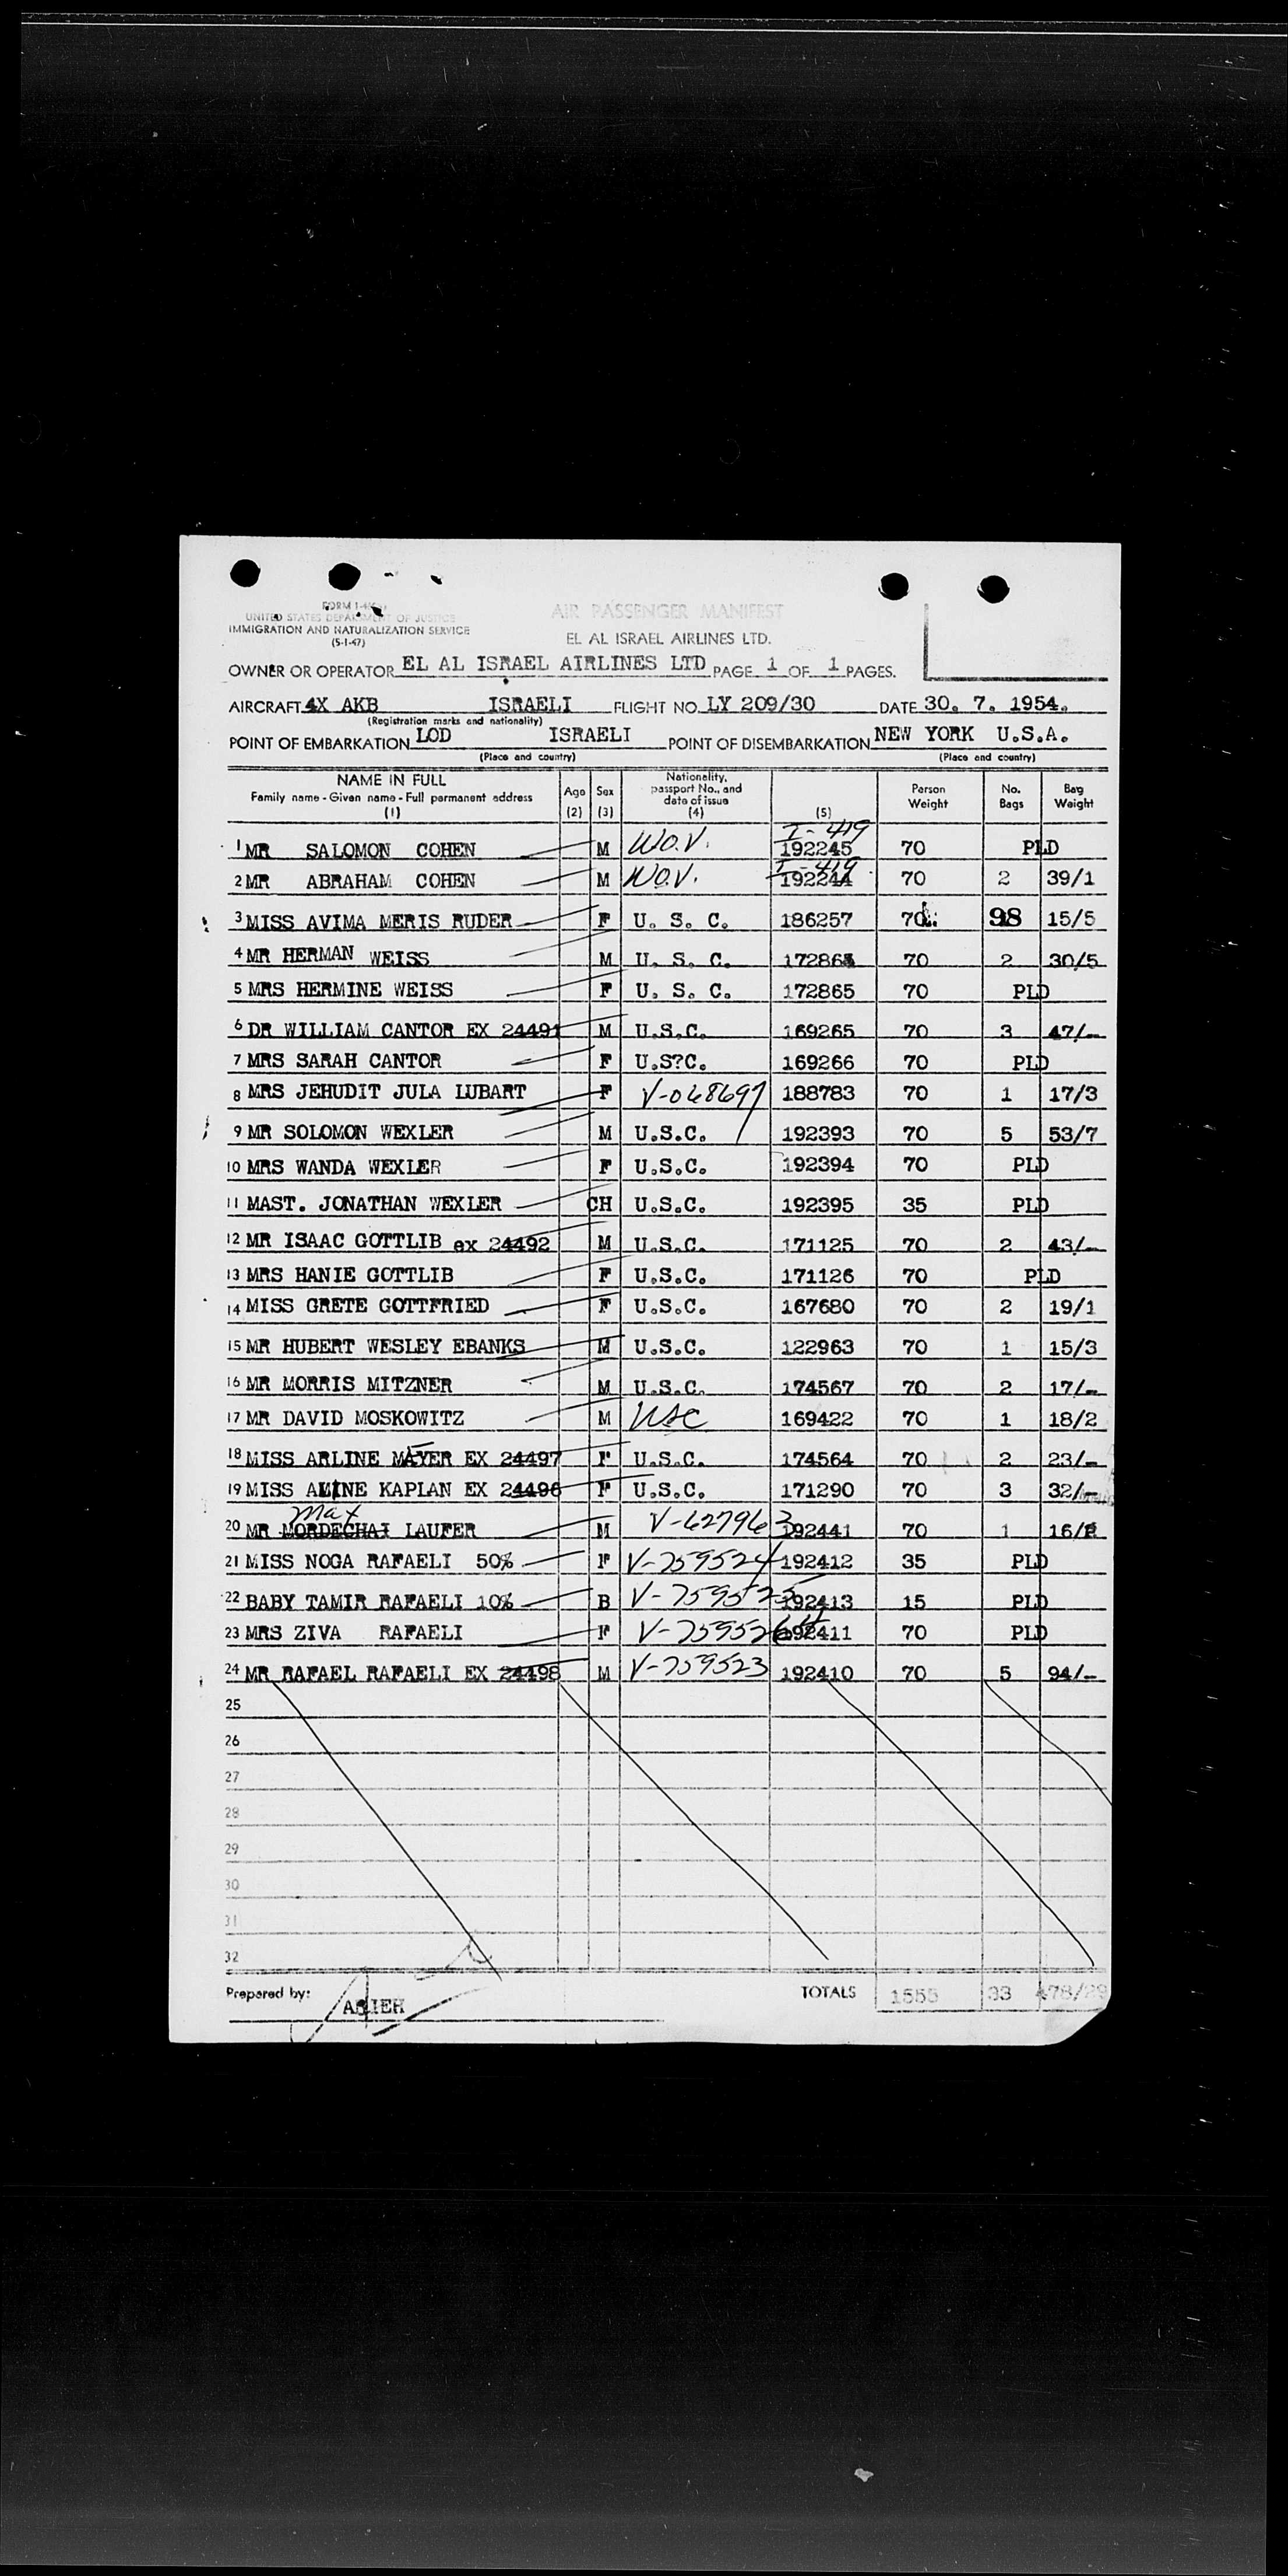 FORM I-
UNITED STATES DEPARTMENT OF JUSTICE
IMMIGRATION AND NATURALIZATION SERVICE
(5-1-47)
AIR PASSENGER MANIFEST
EL AL ISRAEL AIRLINES LTD.
OWNER OR OPERATOR EL AL ISRAEL AIRLINES LTD PAGE 1 OF 1 PAGES.
AIRCRAFT 4X AKB ISRAELI FLIGHT NO. LY 209/30 DATE 30. 7. 1954.
(Registration marks and nationality)
POINT OF EMBARKATION LOD ISRAELI POINT OF DISEMBARKATION NEW YORK U.S.A.
(Place and country) (Place and country)
NAME IN FULL
Family name - Given name - Full permanent address
(1)
Age
(2)
Sex
(3)
Nationality,
passport No., and
date of issue
(4)
(5)
Person
Weight
No.
Bags
Bag
Weight
1 MR SALOMON COHEN M W.O.V. I-419 192245 70 PLD
2 MR ABRAHAM COHEN M W.O.V. I-419 192244 70 2 39/1
3 MISS AVIMA MERIS RUDER F U. S. C. 186257 70 98 15/5
4 MR HERMAN WEISS M U. S. C. 172864 70 2 30/5
5 MRS HERMINE WEISS F U. S. C. 172865 70 PLD
6 DR WILLIAM CANTOR EX 24491 M U.S.C. 169265 70 3 47/-
7 MRS SARAH CANTOR F U.S?C. 169266 70 PLD
8 MRS JEHUDIT JULA LUBART F V-068697 188783 70 1 17/3
9 MR SOLOMON WEXLER M U.S.C. 192393 70 5 53/7
10 MRS WANDA WEXLER F U.S.C. 192394 70 PLD
11 MAST. JONATHAN WEXLER CH U.S.C. 192395 35 PLD
12 MR ISAAC GOTTLIB ex 24492 M U.S.C. 171125 70 2 43/-
13 MRS HANIE GOTTLIB F U.S.C. 171126 70 PLD
14 MISS GRETE GOTTFRIED F U.S.C. 167680 70 2 19/1
15 MR HUBERT WESLEY EBANKS M U.S.C. 122963 70 1 15/3
16 MR MORRIS MITZNER M U.S.C. 174567 70 2 17/-
17 MR DAVID MOSKOWITZ M USC 169422 70 1 18/2
18 MISS ARLINE MAYER EX 24497 F U.S.C. 174564 70 2 23/-
19 MISS ALINE KAPLAN EX 24496 F U.S.C. 171290 70 3 32/-
Max
20 MR MORDECHAI LAUFER M V-627963 192441 70 1 16/2
21 MISS NOGA RAFAELI 50% F V-759524 192412 35 PLD
22 BABY TAMIR RAFAELI 10% B V-759525 192413 15 PLD
23 MRS ZIVA RAFAELI F V-759526 192411 70 PLD
24 MR RAFAEL RAFAELI EX 24498 M V-759523 192410 70 5 94/-
25
26
27
28
29
30
31
32
Prepared by: ARIEH TOTALS 1555 33 478/29